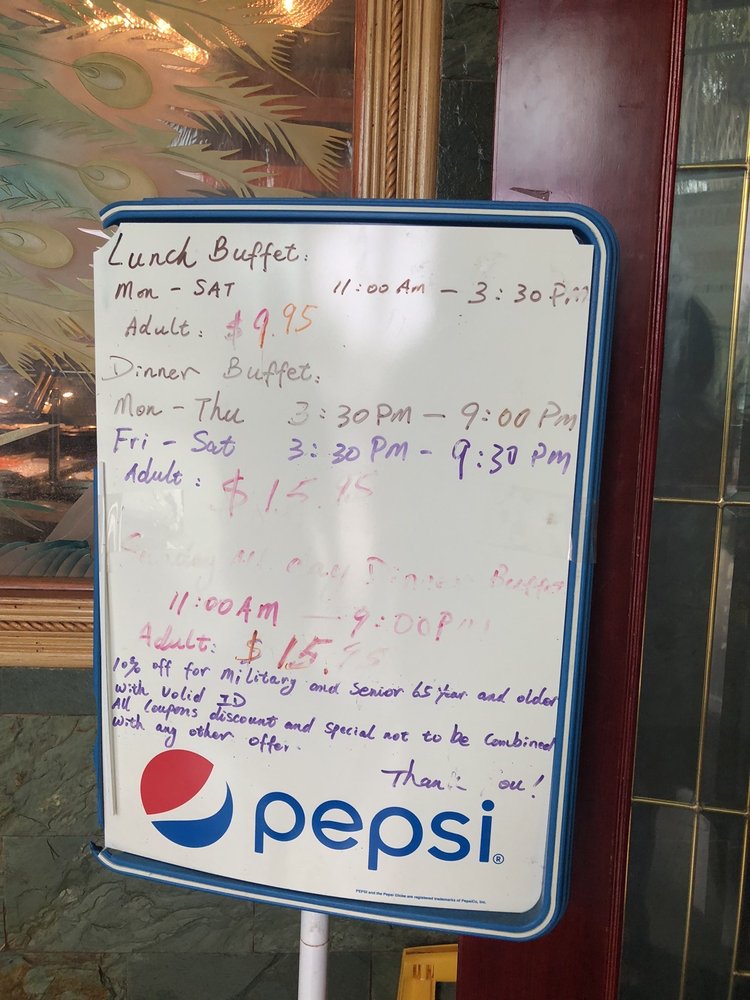 Lunch Buffet:
Mon - SAT 11:00 Am - 3:30 Pm
Adult: $9.95
Dinner Buffet:
Mon - Thu 3:30 PM - 9:00 Pm
Fri - Sat 3:30 PM - 9:30 PM
Adult: $15.95
Sunday All Day Dinner Buffet
11:00AM - 9:00PM
Adult: $15.95
10% off for military and senior 65 year and older
with valid ID
All coupons discount and special not to be combined
with any other offer.
Thank ou!
pepsi®
PEPSI and the Pepsi Globe are registered trademarks of PepsiCo, Inc.